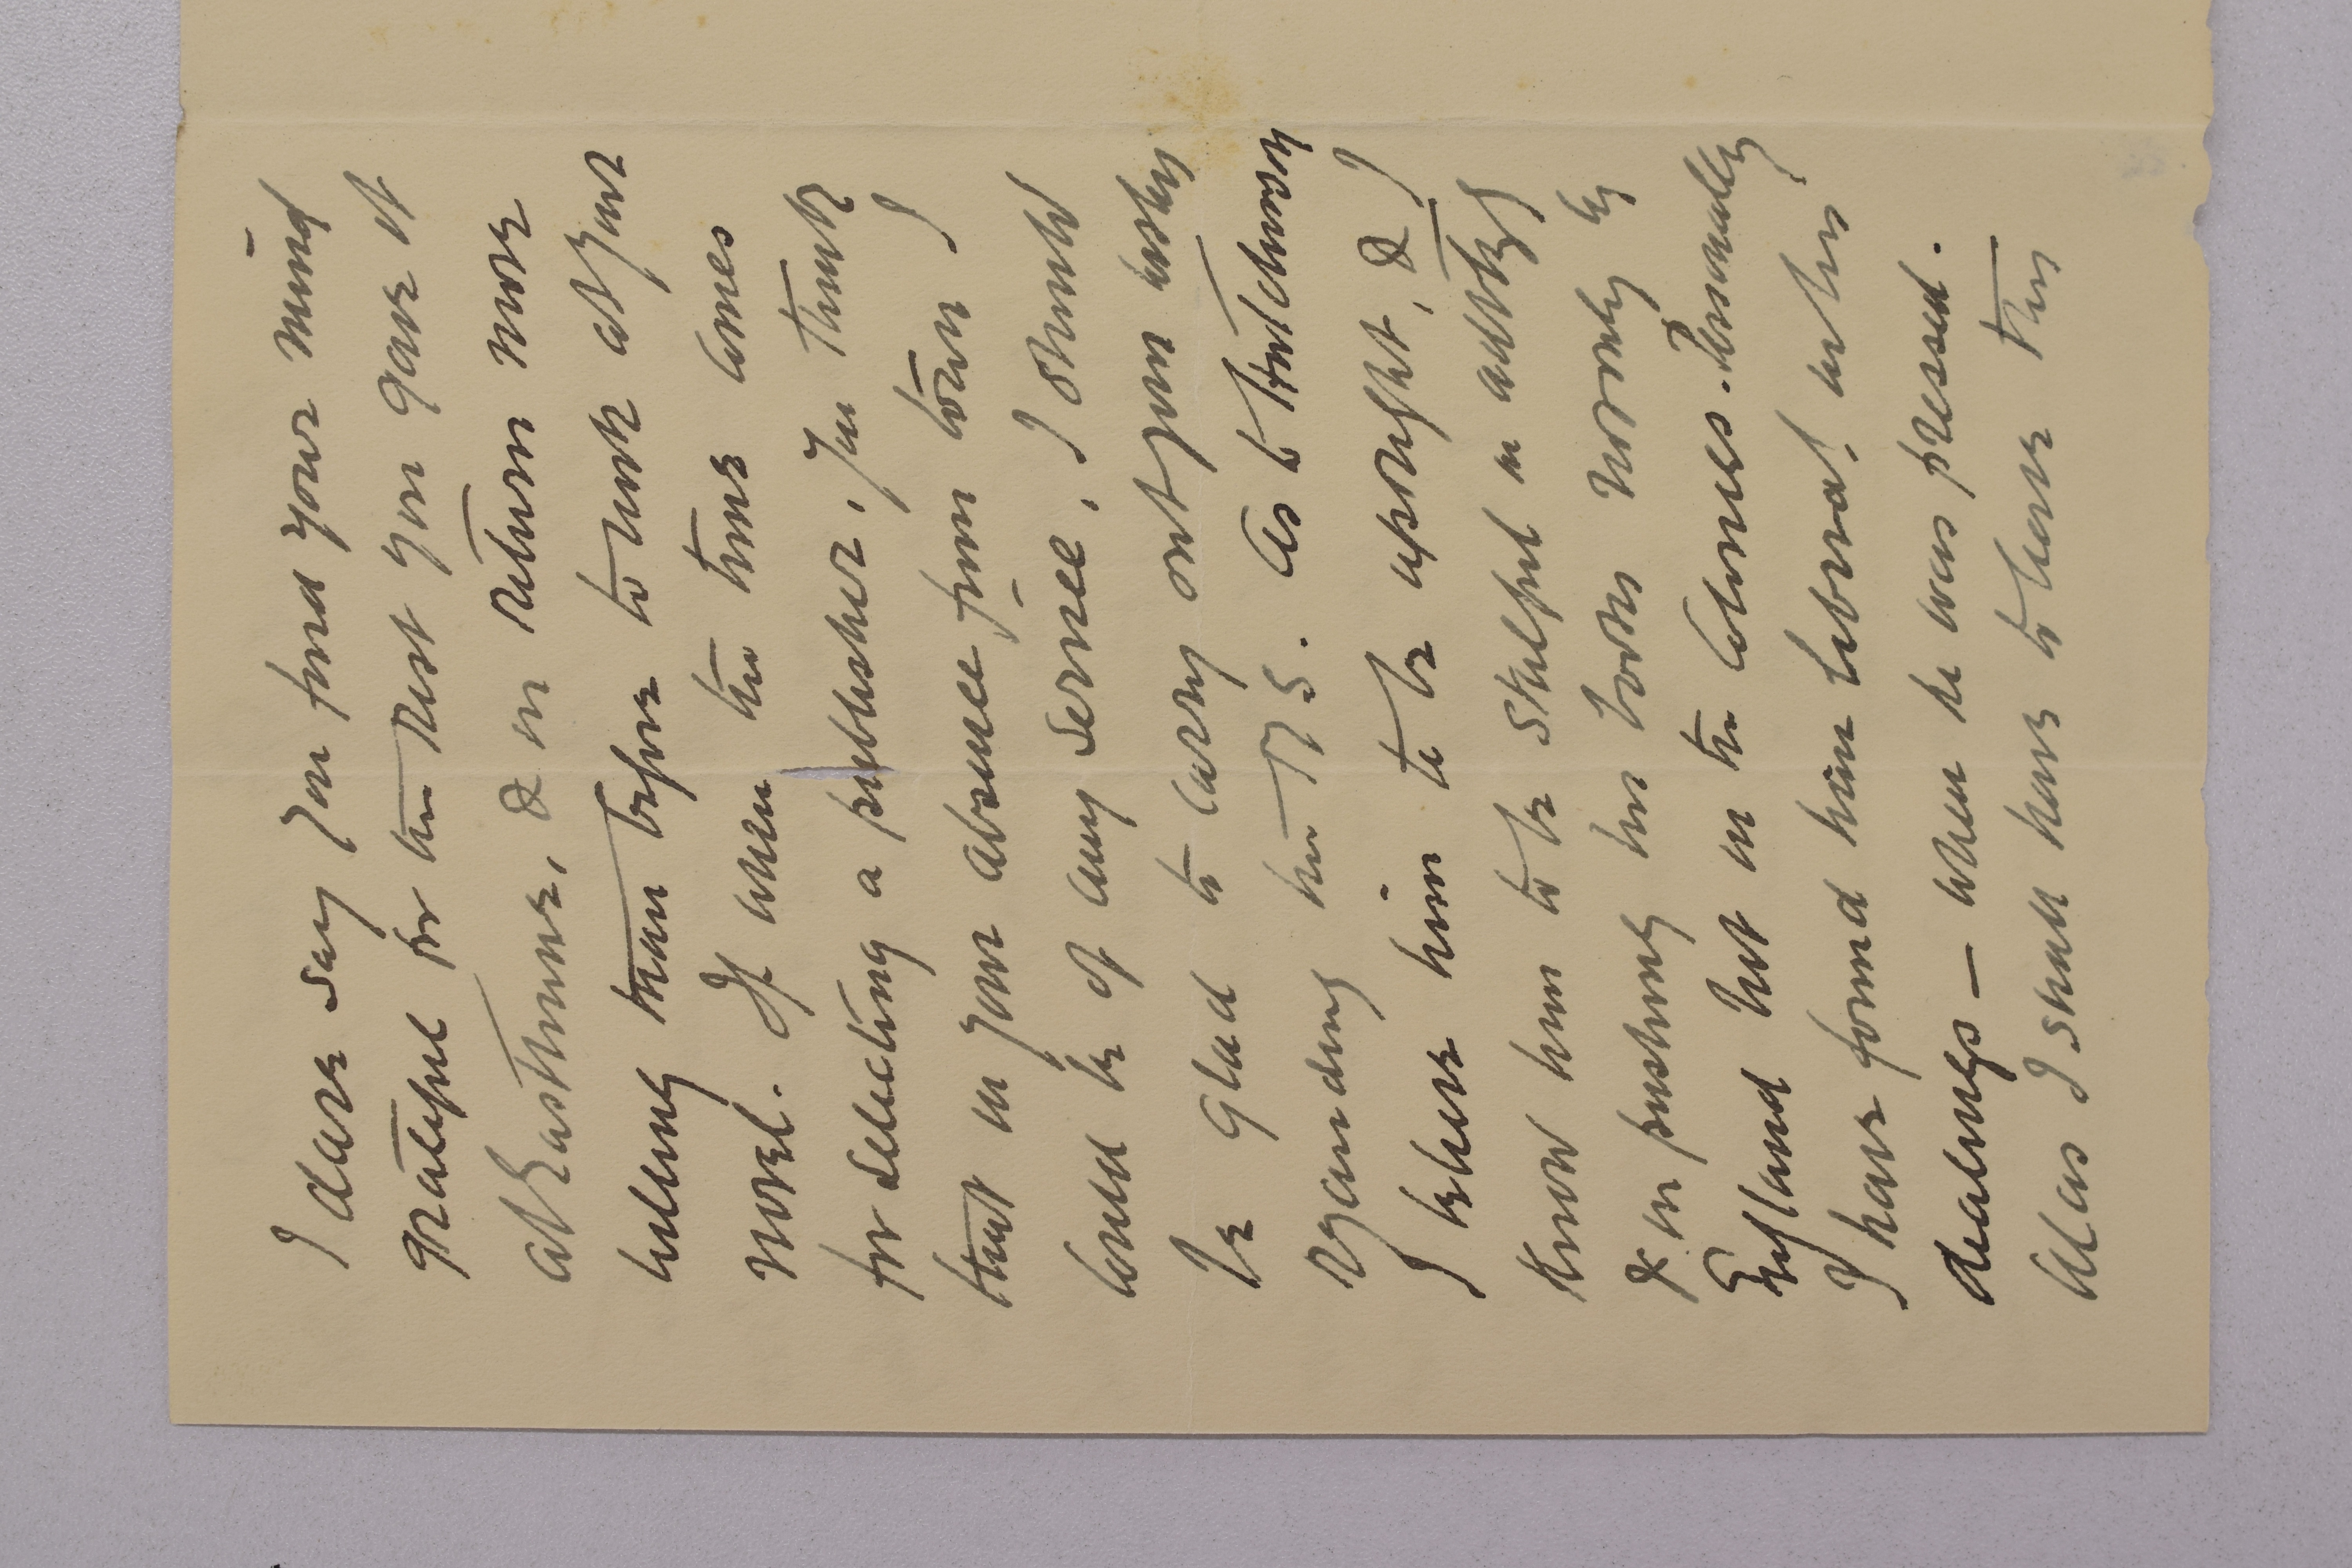 I dare say you find your mind
grateful for the rest you gave it
at Eastbourne, & in return more
willing than before to work at your
novel. If when the time comes
for selecting a publisher, you think
that in your absence from town I
could be of any service, I should
be glad to carry out your wishes
regarding the MS. As to Hutchinson
I believe him to be upright, & I
know him to be skilful in advtsg
& in pushing his books not only in
England but in the Colonies. Personally
I have found him liberal in his
dealings — when he was pressed.
Alas I shall have to leave this